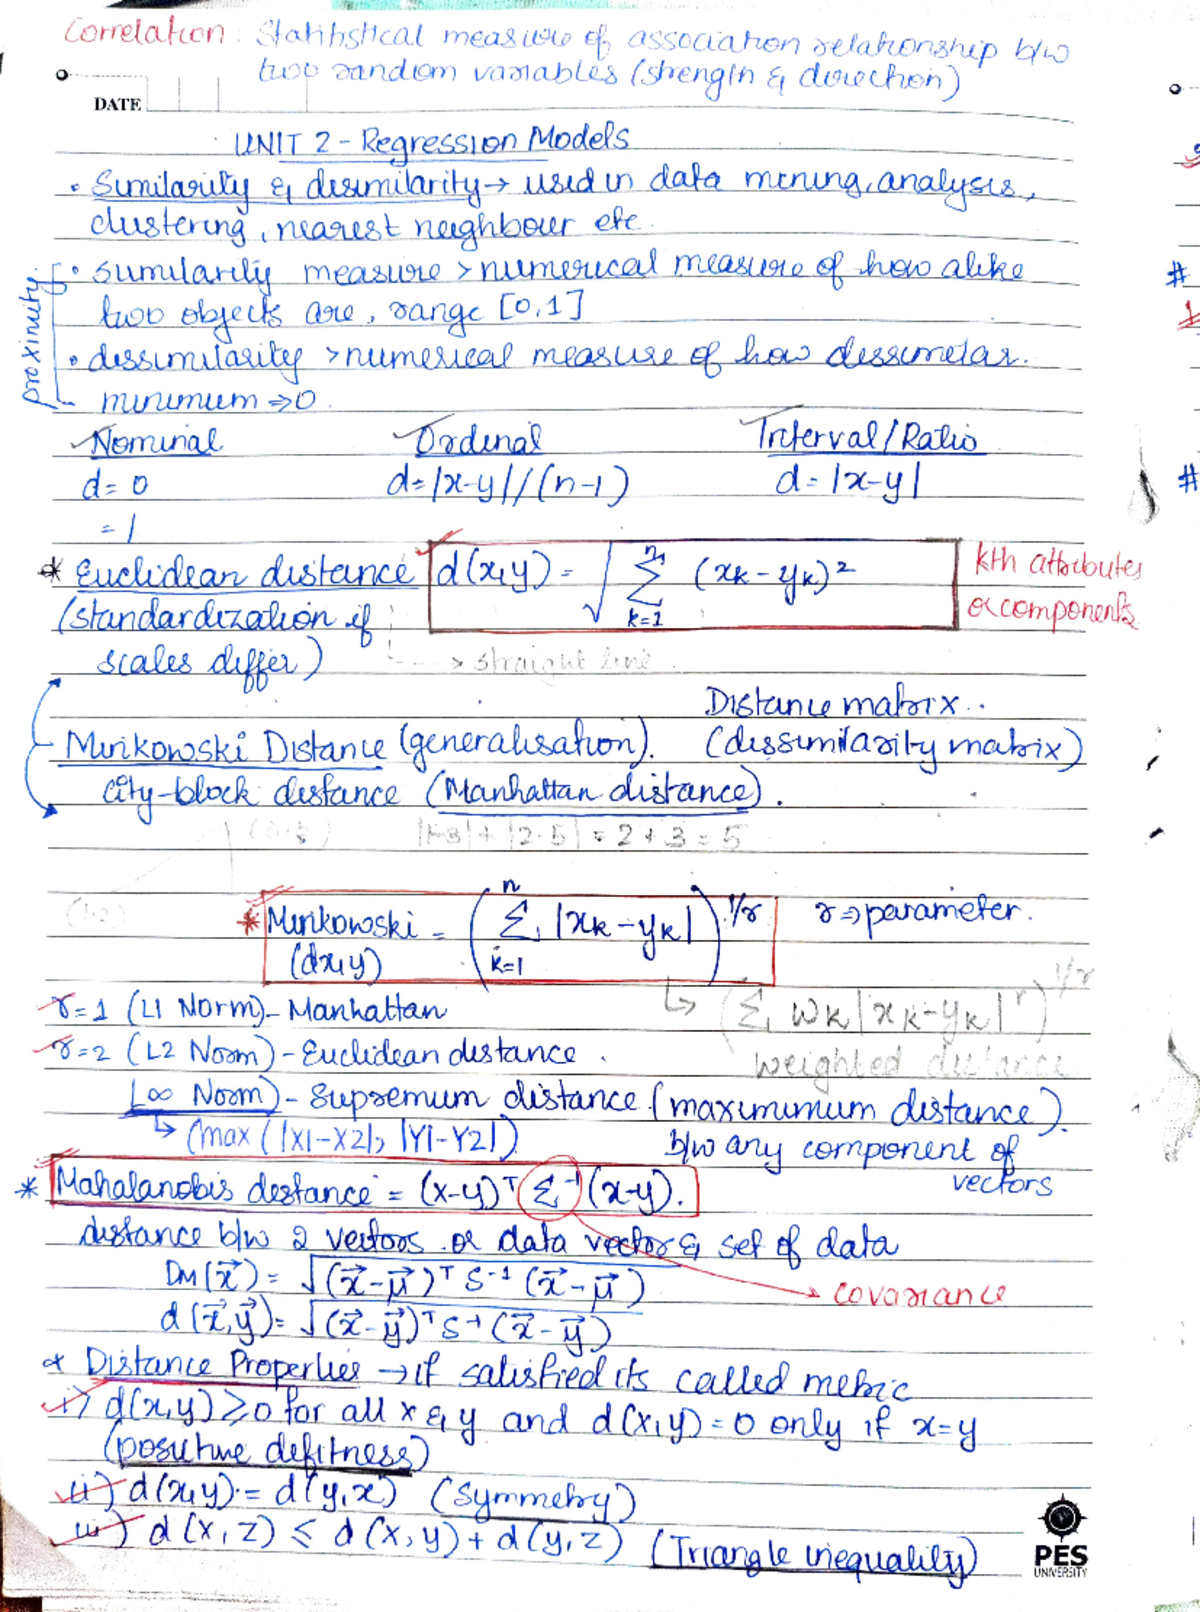 Correlation: Statitistical measure of association relationship b/w
two random variables (strength & direction)
DATE
UNIT 2 - Regression Models
• Similarity & dissimilarity → used in data mining, analysis,
clustering, nearest neighbour etc.
proximity
• similarity measure > numerical measure of how alike
two objects are, range [0,1]
• dissimilarity > numerical measure of how dissimilar.
minimum ⇒ 0.
Nominal Ordinal Interval/Ratio
d = 0 d = |x-y|/(n-1) d = |x-y|
= 1
* Euclidean distance d(x,y) = √ n Σ k=1 (xk - yk)² kth attributes
(standardization if or components
scales differ) -> straight line.
Distance matrix..
Minkowski Distance (generalisation). (dissimilarity matrix)
city-block distance (Manhattan distance).
|1-3| + |2-5| = 2+3 = 5
(1,2)
* Minkowski = ( n Σ k=1 |xk - yk| ) 1/r r ⇒ parameter.
(dx,y)
r=1 (L1 Norm) - Manhattan ↳ (Σ wk |xk - yk| r) 1/r
r=2 (L2 Norm) - Euclidean distance. weighted distance
L∞ Norm) - Supremum distance (maximimum distance).
↳ (max (|X1-X2|, |Y1-Y2|) b/w any component of
vectors
* Mahalanobis distance = (x-y)ᵀ Σ⁻¹ (x-y).
distance b/w 2 vectors or data vector & set of data
DM(x⃗) = √(x⃗-μ⃗)ᵀ S⁻¹ (x⃗-μ⃗) → covariance
d(x⃗,y⃗) = √(x⃗-y⃗)ᵀ S⁻¹ (x⃗-y⃗)
* Distance Properties → if satisfied its called metric
i) d(x,y) ≥ 0 for all x & y and d(x,y) = 0 only if x=y
(positive defitness)
ii) d(x,y) = d(y,x) (Symmetry)
iii) d(x,z) ≤ d(x,y) + d(y,z) (Triangle inequality)
PES
UNIVERSITY